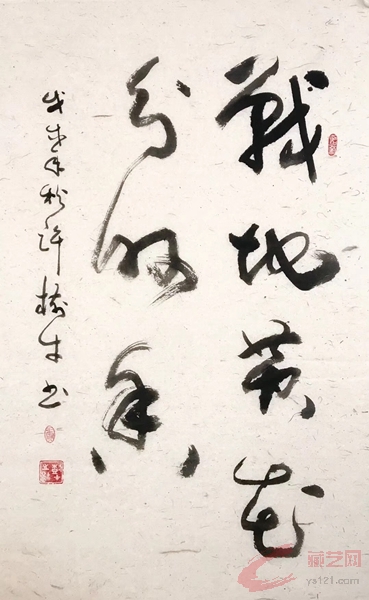 戰地黄花
分外香
戊戌年秋許生书
藏艺网
ys121.com